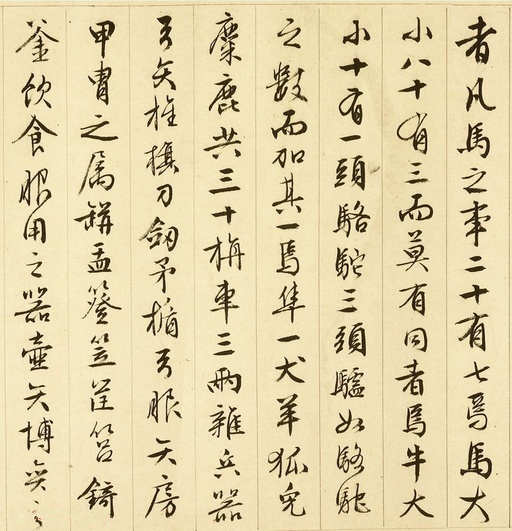 者凡馬之事二十有七焉馬大
小八十有三而莫有同者焉牛大
小十有一頭駱駝三頭驢如駱駝
之數而加其一焉隼一犬羊狐兔
麋鹿共三十旃車三兩雜兵器
弓矢旌旗刀劍矛楯弓服矢房
甲冑之属缾盂簦笠筐筥錡
釜飲食服用之器壺矢博奕之